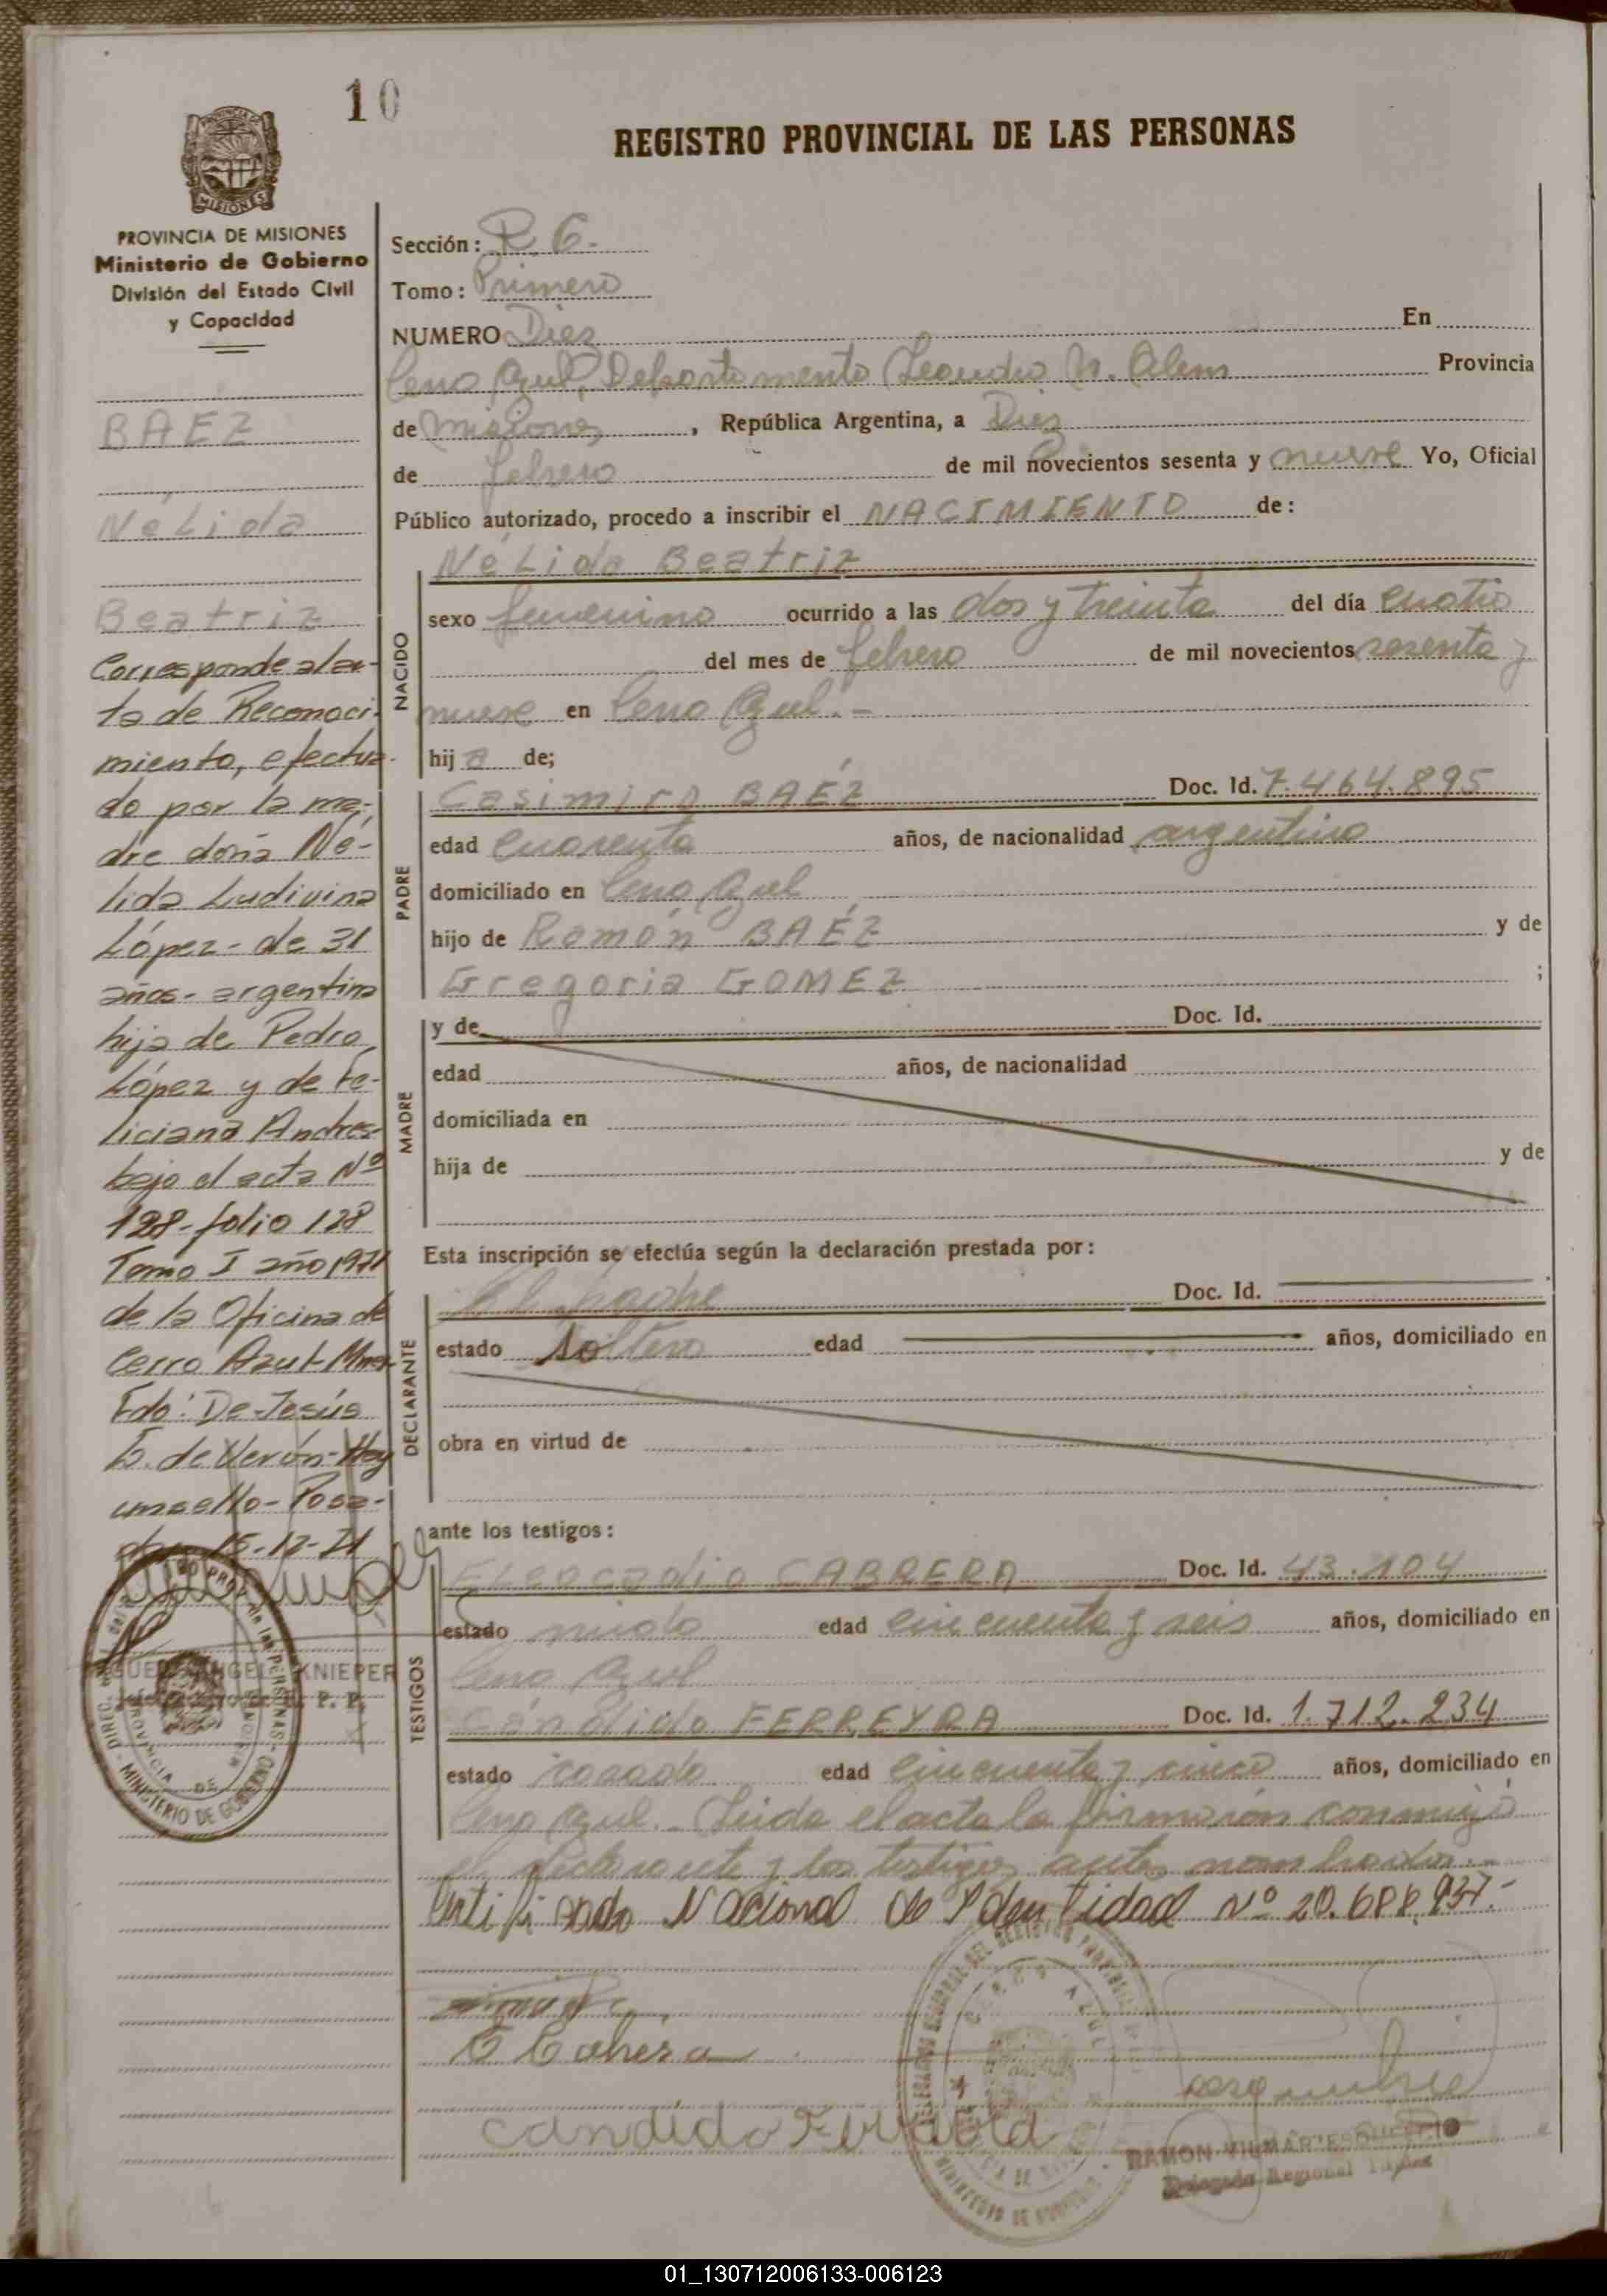 10
REGISTRO PROVINCIAL DE LAS PERSONAS
MISIONES
PROVINCIA DE MISIONES
Ministerio de Gobierno
División del Estado Civil
y Capacidad
BAEZ
Nélida
Beatriz
Corresponde al ac-
ta de Reconoci-
miento, efectua-
do por la ma-
dre doña Né-
lida Ludivina
López - de 31
años - argentina
hija de Pedro
López y de Fe-
liciana Andres-
bajo el acta Nº
128 - folio 128
Tomo I año 1971
de la Oficina de
Cerro Azul - Mnes
Fdo: De Jesús
de Verón - Hay
un sello - Posa-
das 15-12-71
KNIEPER
Sección: R. G.
Tomo: Primero
NUMERO Diez En
Cerro Azul, Departamento Leandro N. Alem Provincia
de Misiones, República Argentina, a Diez
de febrero de mil novecientos sesenta y nueve Yo, Oficial
Público autorizado, procedo a inscribir el NACIMIENTO de:
NACIDO
Nélida Beatriz
sexo femenino ocurrido a las dos y treinta del día cuatro
del mes de febrero de mil novecientos sesenta y
nueve en Cerro Azul.-
hija de;
PADRE
Casimiro BAÉZ Doc. Id. 7.464.895
edad cuarenta años, de nacionalidad argentino
domiciliado en Cerro Azul
hijo de Ramón BAÉZ y de
Gregoria GOMEZ ;
MADRE
y de Doc. Id.
edad años, de nacionalidad
domiciliada en
hija de y de
Esta inscripción se efectúa según la declaración prestada por:
DECLARANTE
El padre Doc. Id.
estado soltero edad años, domiciliado en
obra en virtud de
ante los testigos:
TESTIGOS
Eleocadio CABRERA Doc. Id. 43.104
estado viudo edad cincuenta y seis años, domiciliado en
Cerro Azul
Cándido FERREYRA Doc. Id. 1.712.234
estado casado edad cincuenta y cinco años, domiciliado en
Cerro Azul.- Leida el acta la firmaron conmigo
el declarante y los testigos antes nombrados.-
Certificado Nacional de Identidad Nº 20.688.937.-
E Cabrera
candido
RAMON
Delegado Regional
01_130712006133-006123